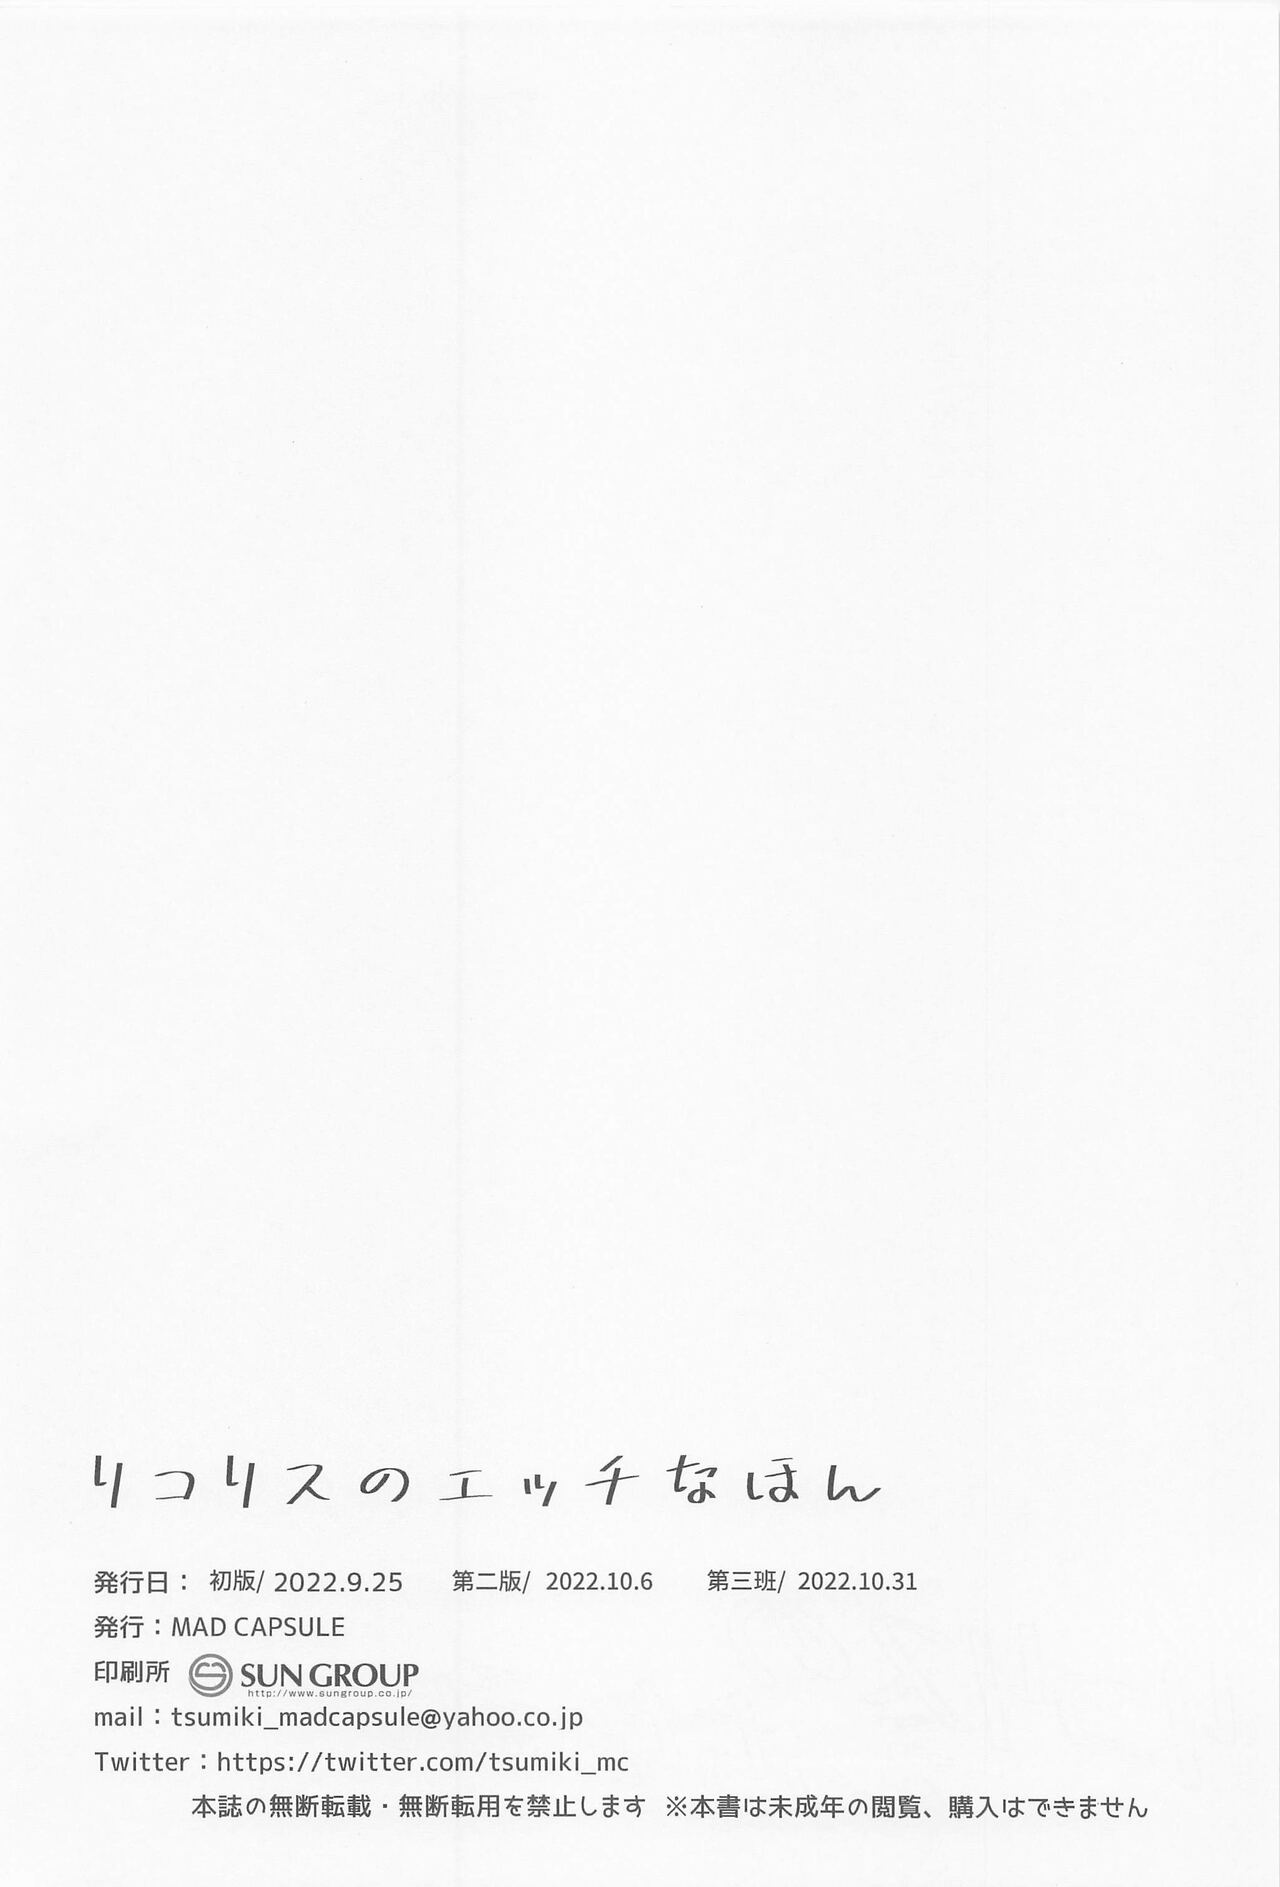 リコリスのエッチなほん
発行日： 初版/ 2022.9.25 第二版/ 2022.10.6 第三班/ 2022.10.31
発行：MAD CAPSULE
印刷所 SUN GROUP
http://www.sungroup.co.jp/
mail：tsumiki_madcapsule@yahoo.co.jp
Twitter：https://twitter.com/tsumiki_mc
本誌の無断転載・無断転用を禁止します ※本書は未成年の閲覧、購入はできません